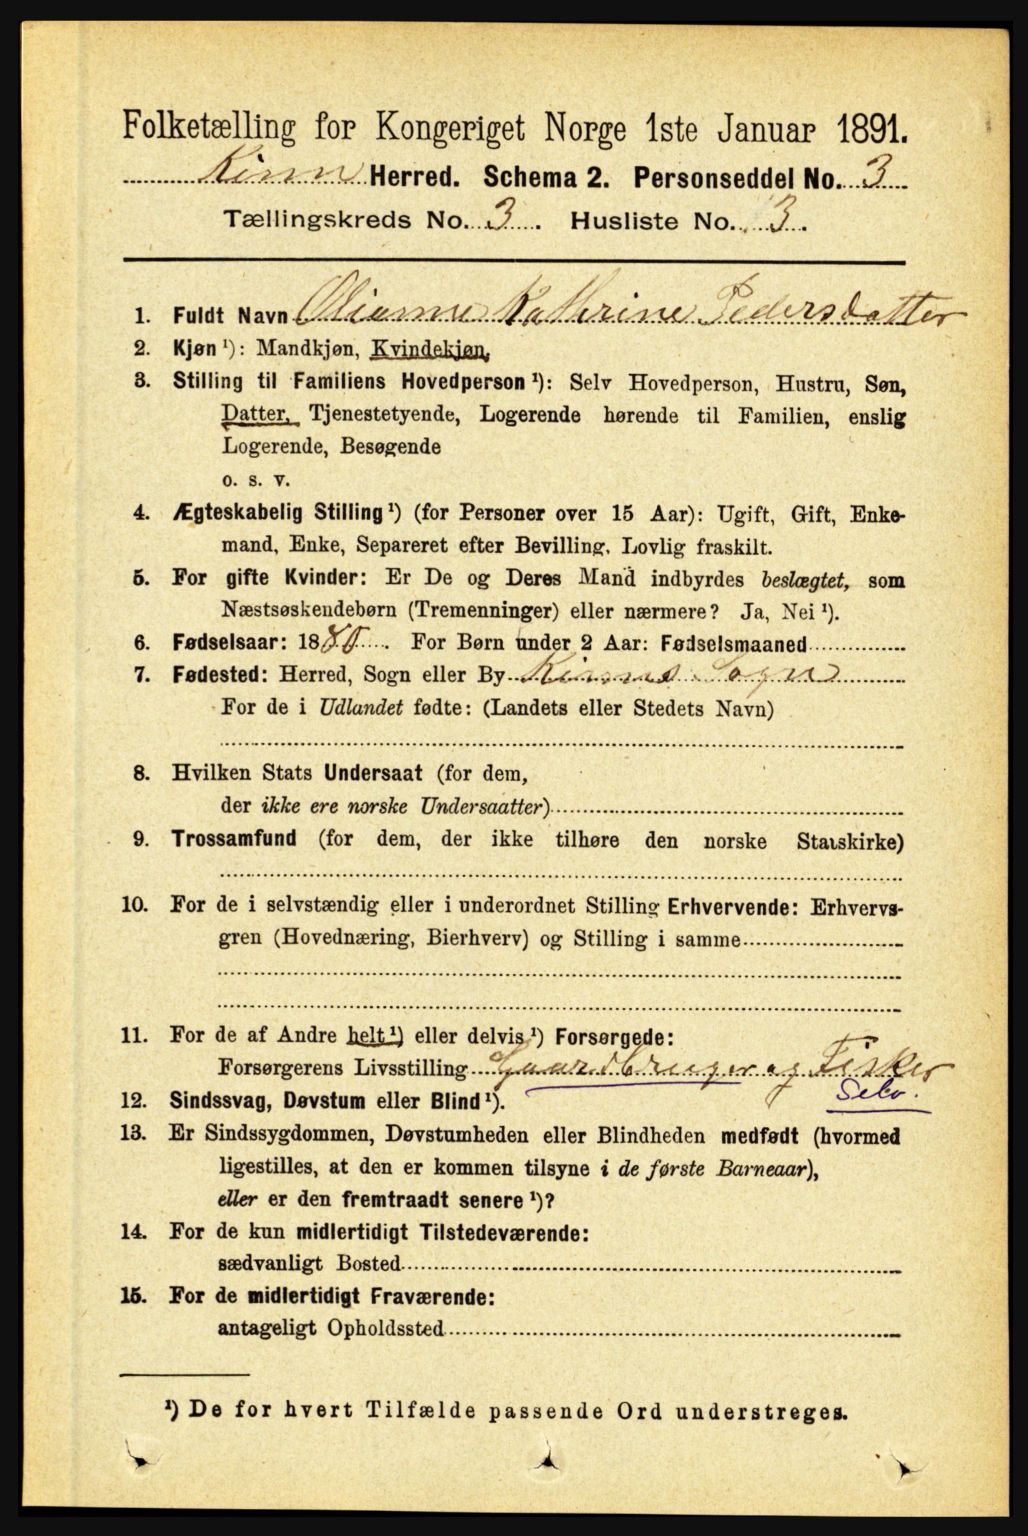 Folketælling for Kongeriget Norge 1ste Januar 1891.
Kinn Herred. Schema 2. Personseddel No. 3
Tællingskreds No. 3. Husliste No. 3.
1. Fuldt Navn Olianne Kathrine Pedersdatter
2. Kjøn ¹): Mandkjøn, Kvindekjøn.
3. Stilling til Familiens Hovedperson ¹): Selv Hovedperson, Hustru, Søn,
Datter, Tjenestetyende, Logerende hørende til Familien, enslig
Logerende, Besøgende
o. s. v.
4. Ægteskabelig Stilling ¹) (for Personer over 15 Aar): Ugift, Gift, Enke-
mand, Enke, Separeret efter Bevilling, Lovlig fraskilt.
5. For gifte Kvinder: Er De og Deres Mand indbyrdes beslægtet, som
Næstsøskendebørn (Tremenninger) eller nærmere? Ja, Nei ¹).
6. Fødselsaar: 1880. For Børn under 2 Aar: Fødselsmaaned
7. Fødested: Herred, Sogn eller By Kinns Sogn
For de i Udlandet fødte: (Landets eller Stedets Navn)
8. Hvilken Stats Undersaat (for dem,
der ikke ere norske Undersaatter)
9. Trossamfund (for dem, der ikke tilhøre den norske Statskirke)
10. For de i selvstændig eller i underordnet Stilling Erhvervende: Erhvervs-
gren (Hovednæring, Bierhverv) og Stilling i samme
11. For de af Andre helt ¹) eller delvis ¹) Forsørgede:
Forsørgerens Livsstilling Gaardbruger og Fisker
Selv.
12. Sindssvag, Døvstum eller Blind ¹).
13. Er Sindssygdommen, Døvstumheden eller Blindheden medfødt (hvormed
ligestilles, at den er kommen tilsyne i de første Barneaar),
eller er den fremtraadt senere ¹)?
14. For de kun midlertidigt Tilstedeværende:
sædvanligt Bosted
15. For de midlertidigt Fraværende:
antageligt Opholdssted
¹) De for hvert Tilfælde passende Ord understreges.